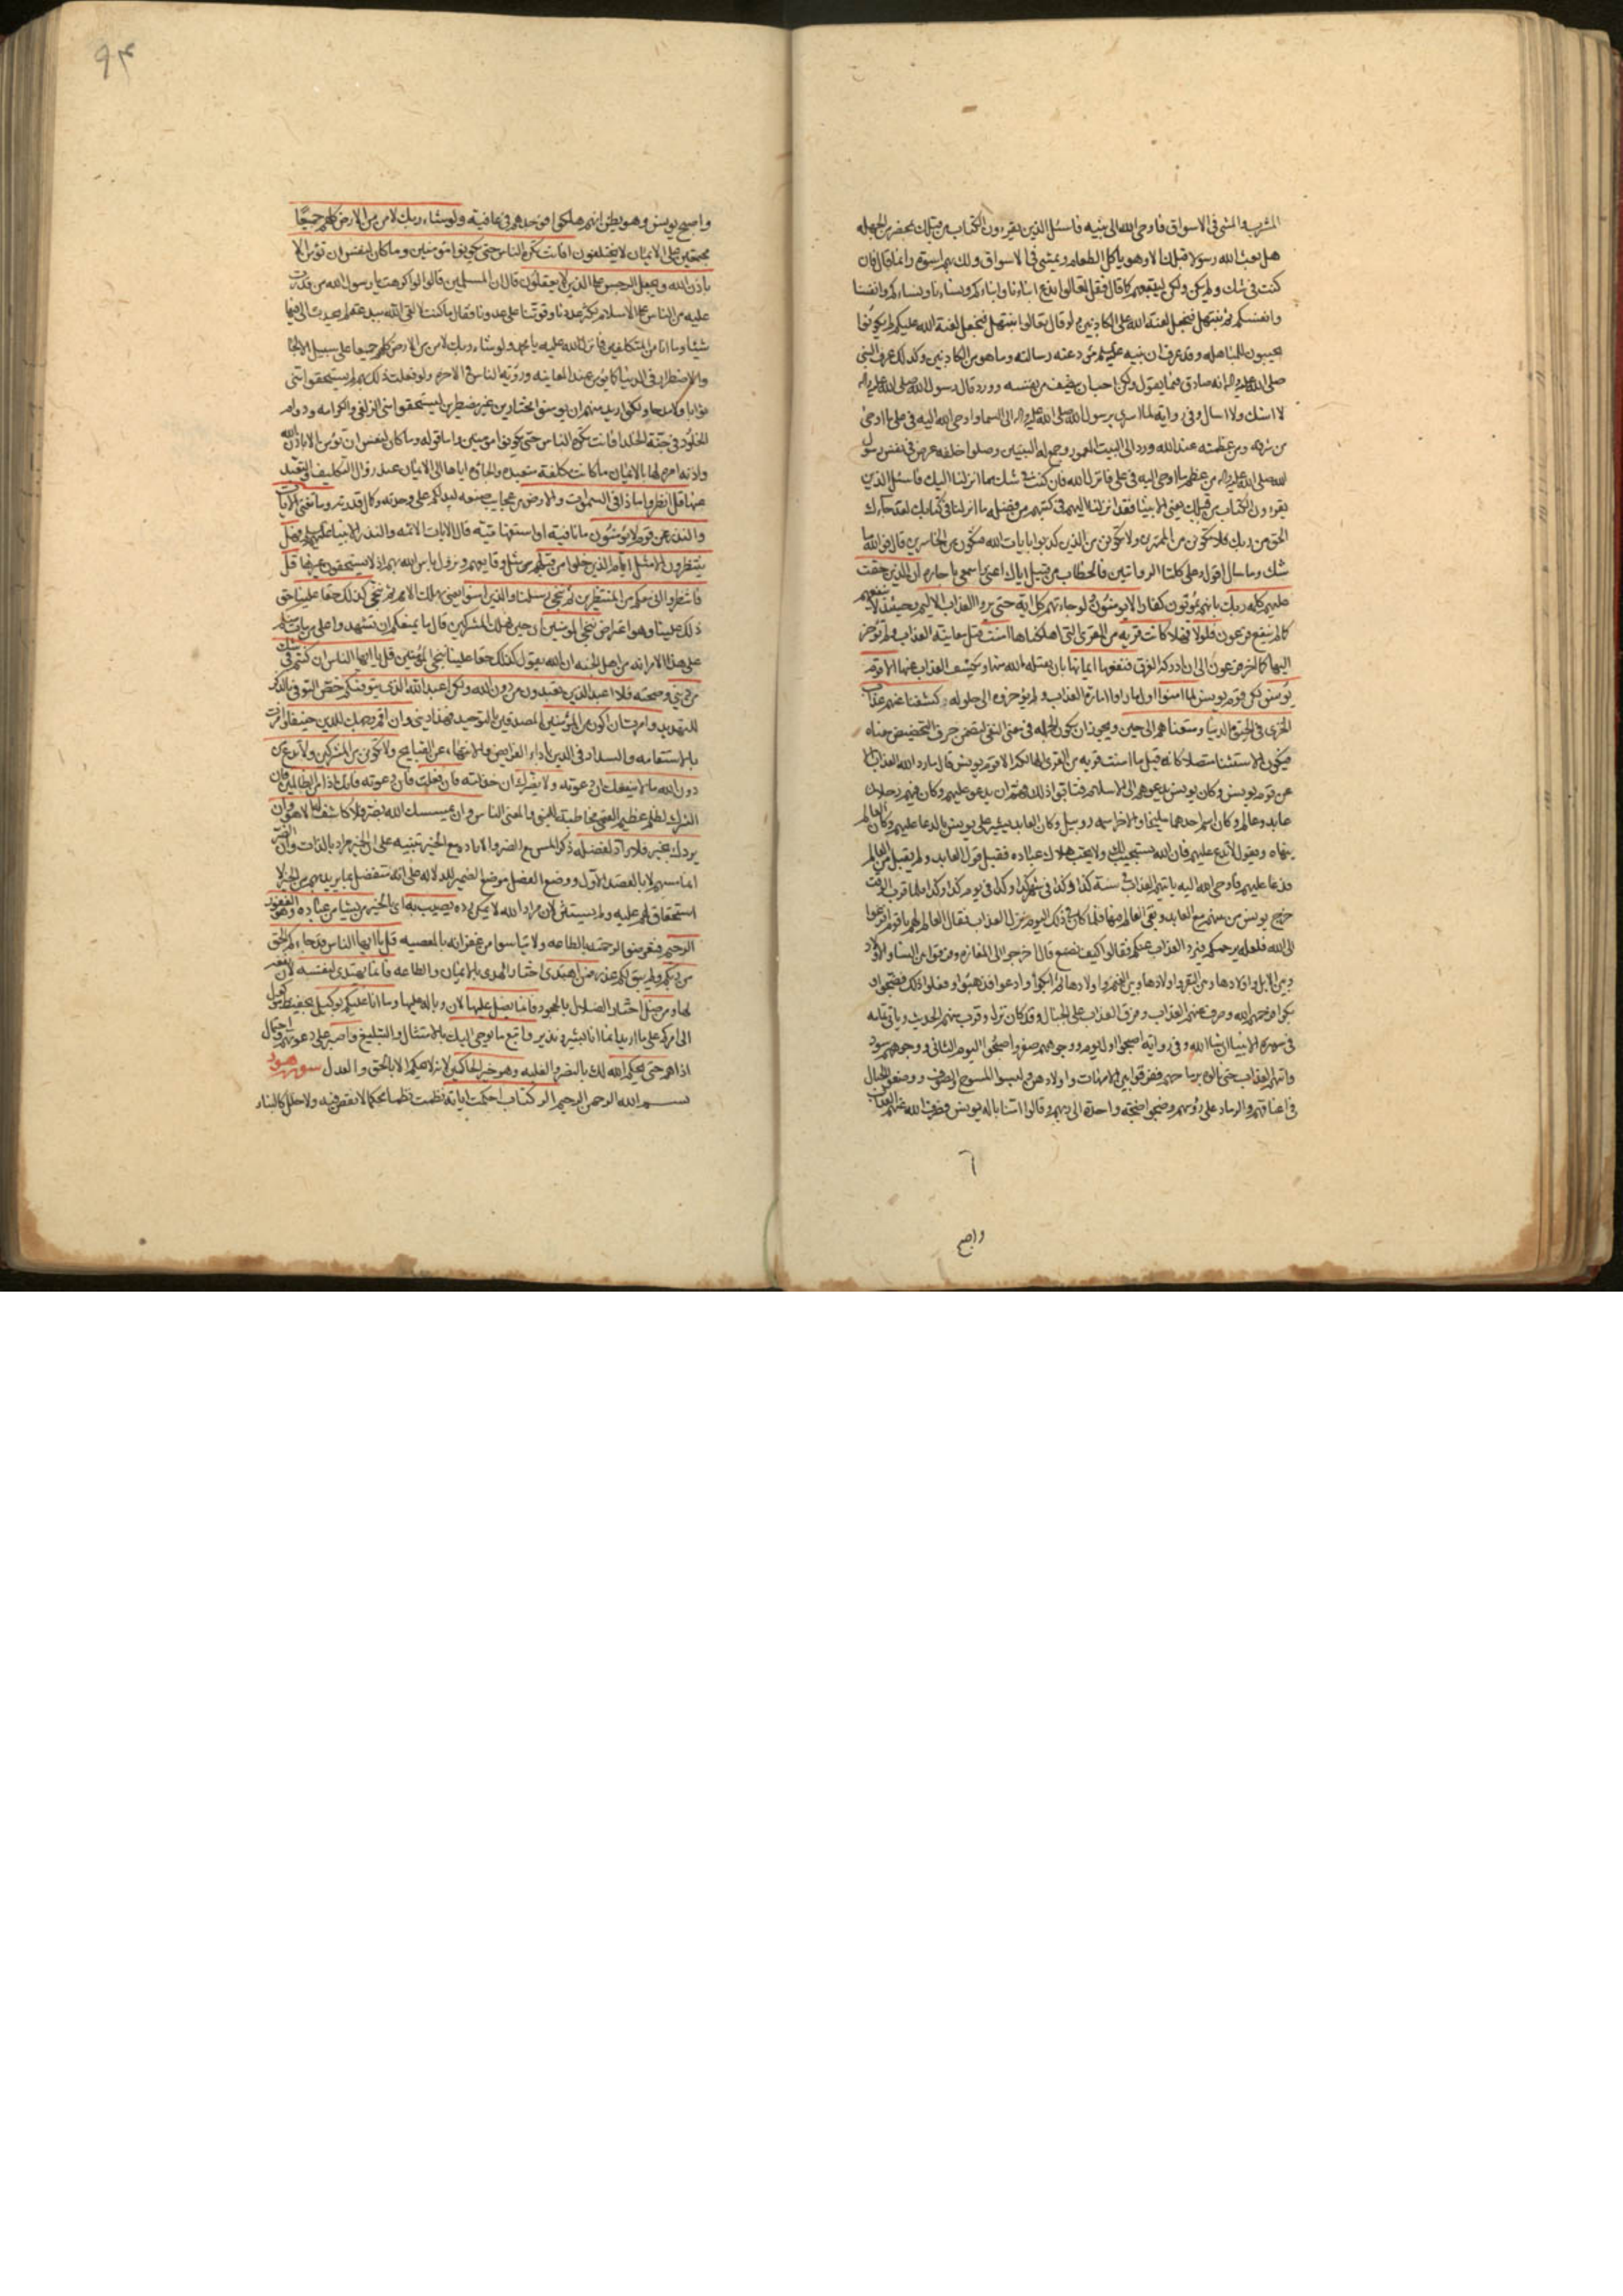 المشرب والمشي في الاسواق فاوحى الله الى نبيه فاسئل الذين يقرءون الكتاب من قبلك بمحضر من الجهله
هل بعث الله رسولا قبلك الا وهو ياكل الطعام ويمشي في الاسواق ولك بهم اسوة وانما قال فان
كنت في شك ولم يكن ولكن ليتبعهم كما قال فقل تعالوا ندع ابناءنا وابناءكم ونساءنا ونساءكم وانفسنا
وانفسكم ثم نبتهل فنجعل لعنة الله على الكاذبين ولو قال تعالوا نبتهل فنجعل لعنة الله عليكم لم يكونوا
يجيبون للمباهله وقد عرف ان نبيه عليه السلم مؤد عنه رسالته وما هو من الكاذبين وكذلك عرف النبي
صلى الله عليه واله انه صادق فيما يقول ولكن احب ان ينصف من نفسه وورد قال رسول الله صلى الله عليه واله
لا اشك ولا اسال وفي رواية لما اسري برسول الله صلى الله عليه واله الى السما واوحى الله اليه في علي ما اوحى
من شرفه ومن عظمته عند الله ورد الى البيت المعمور وجمع له النبيين وصلوا خلفه عرض في نفس رسول
الله صلى الله عليه واله من عظم ما اوحى اليه في علي فانزل الله فان كنت في شك مما انزلنا اليك فاسئل الذين
يقرءون الكتاب من قبلك يعني الانبيا فقد انزلنا اليهم في كتبهم من فضله ما انزلنا في كتابك لقد جاءك
الحق من ربك فلا تكونن من الممترين ولا تكونن من الذين كذبوا بايات الله فتكون من الخاسرين قال فوالله ما
شك وما سال اقول وعلى كلتا الروايتين فالخطاب من قبيل اياك اعني واسمعي يا جاره ان الذين حقت
عليهم كلمه ربك بانهم يموتون كفارا لا يومنون ولو جاءتهم كل اية حتى يروا العذاب الاليم فحينئذ لا ينفعهم
كما لم ينفع فرعون فلولا فهلا كانت قرية من القرى التي اهلكناها امنت قبل معاينة العذاب ولم تؤخر
اليها كما اخر فرعون الى ان ادركه الغرق فنفعها ايمانها بان يقبله الله منها ويكشف العذاب عنها الا قوم
يونس لكن قوم يونس لما امنوا اول ما راوا امارة العذاب ولم يؤخروه الى حلوله كشفنا عنهم عذاب
الخزي في الحيوة الدنيا ومتعناهم الى حين ويجوز ان يكون الجمله في معنى النفي لتضمن حرف التحضيض معناه
فيكون الاستثنا متصلا كانه قيل ما امنت قرية من القرى الهالكة الا قوم يونس قال ما رد الله العذاب الا
عن قوم يونس وكان يونس يدعوهم الى الاسلام فتابوا ذلك فهم ان يدعو عليهم وكان فيهم رجلان
عابد وعالم وكان اسم احدهما مليخا والاخر اسمه روبيل وكان العابد يشير على يونس بالدعا عليهم وكان العالم
ينهاه ويقول لا تدع عليهم فان الله يستجيب لك ولا يحب هلاك عباده فقبل قول العابد ولم يقبل من العالم
فدعا عليهم فاوحى الله اليه ياتيهم العذاب في سنة كذا وكذا في شهر كذا وكذا في يوم كذا وكذا فلما قرب الوقت
خرج يونس من بينهم مع العابد وبقي العالم فيها فلما كان في ذلك اليوم نزل العذاب فقال العالم لهم يا قوم افزعوا
الى الله فلعله يرحمكم فيرد العذاب عنكم فقالوا كيف نصنع قال اخرجوا الى المفازه وفرقوا بين النسا والاولاد
وبين الابل واولادها وبين البقر واولادها وبين الغنم واولادها ثم ابكوا وادعوا فذهبوا وفعلوا ذلك فضجوا و
بكوا فرحمهم الله وصرف عنهم العذاب وفرق العذاب على الجبال وقد كان نزل وقرب منهم الحديث وياتي تمامه
في سورة الانبيا ان شاء الله وفي رواية اصبحوا اول يوم ووجوههم صفر واصبحوا اليوم الثاني ووجوههم سود
واتيهم العذاب حتى نالوه برماحهم ففرقوا بين الامهات واولادهن ولبسوا المسوح والصوف ووضعوا الحبال
في اعناقهم والرماد على رؤسهم وضجوا ضجة واحدة الى ربهم وقالوا امنا باله يونس فصرف الله عنهم العذاب
٦
واصبح
٩٤
واصبح يونس وهو يظن انهم هلكوا فوجدهم في عافية ولو شاء ربك لامن من في الارض كلهم جميعا
مجتمعين على الايمان لا يختلفون افانت تكره الناس حتى يكونوا مؤمنين وما كان لنفس ان تؤمن الا
باذن الله ويجعل الرجس على الذين لا يعقلون قال ان المسلمين قالوا لو اكرهت يا رسول الله من قدرت
عليه من الناس على الاسلام لكثر عددنا وقوتنا على عدونا فقال ما كنت لالقى الله ببدعة لم يحدث الي فيها
شيئا وما انا من المتكلفين فانزل الله عليه يا محمد ولو شاء ربك لامن من في الارض كلهم جميعا على سبيل الالجا
والاضطرار في الدنيا كما يؤمن عند المعاينه ورؤية الباس في الاخره ولو فعلت ذلك بهم لم يستحقوا مني
ثوابا ولا مدحا ولكني اريد منهم ان يومنوا مختارين غير مضطرين ليستحقوا مني الزلفى والكرامه ودوام
الخلود في جنة الخلد افانت تكره الناس حتى يكونوا مؤمنين واما قوله وما كان لنفس ان تؤمن الا باذن الله
واذنه امره لها بالايمان ما كانت مكلفة متعبدة والجاؤه اياها الى الايمان عند زوال التكليف والتعبد
عنها قل انظروا ماذا في السموات والارض من عجايب صنعه ليدلكم على وحدته وكمال قدرته وما تغني الايات
والنذر عن قوم لا يؤمنون ما نافية او استفهامية قال الايات الائمه والنذر الانبياء عليهم السلم فهل
ينتظرون الا مثل ايام الذين خلوا من قبلهم مثل وقايعهم ونزول باس الله بهم اذ لا يستحقون غيرها قل
فانتظروا اني معكم من المنتظرين ثم ننجي رسلنا والذين امنوا يعني نهلك الامم ثم ننجي كذلك حقا علينا حق
ذلك علينا وهو اعتراض ننجي المومنين اي حين نهلك المشركين قال ما يمنعكم ان تشهدوا على من مات منكم
على هذا الامر انه من اهل الجنه ان الله يقول كذلك حقا علينا ننجي المؤمنين قل يا ايها الناس ان كنتم في شك
من ديني وصحته فلا اعبد الذين تعبدون من دون الله ولكن اعبد الله الذي يتوفيكم خص التوفي بالذكر
للتهديد وامرت ان اكون من المؤمنين المصدقين بالتوحيد فهذا ديني وان اقم وجهك للدين حنيفا وامرت
بالاستقامه والسداد في الدين باداء الفرايض والانتهاء عن القبايح ولا تكونن من المشركين ولا تدع من
دون الله ما لا ينفعك ان دعوته ولا يضرك ان خذلته فان فعلت فان دعوته فانك اذا من الظالمين فان
الشرك لظلم عظيم القمي مخاطبة للنبي والمعني الناس وان يمسسك الله بضر فلا كاشف له الا هو وان
يردك بخير فلا راد لفضله ذكر المس مع الضر والاراده مع الخير تنبيه على ان الخير مراد بالذات وان الضر
انما مسهم لا بالقصد الاول ووضع الفضل موضع الضمير للدلاله على انه متفضل بما يريد بهم من الخير لا
استحقاق لهم عليه ولم يستثن لان مراد الله لا يمكن رده يصيب به اي بالخير من يشا من عباده وهو الغفور
الرحيم فتعرضوا لرحمته بالطاعه ولا تياسوا من غفرانه بالمعصيه قل يا ايها الناس قد جاءكم الحق
من ربكم ولم يبق لكم عذر فمن اهتدى اختار الهدى بالايمان والطاعه فانما يهتدي لنفسه لان نفعه
لها ومن ضل اختار الضلال بالجحود فانما يضل عليها لان وباله عليها وما انا عليكم بوكيل بحفيظ موكول
الي امركم على ما اريد انما انا بشير ونذير واتبع ما يوحى اليك بالامتثال والتبليغ واصبر على دعوتهم واحتمال
اذاهم حتى يحكم الله لك بالنصر والغلبه وهو خير الحاكمين لانه لا يحكم الا بالحق والعدل سورة هود
بسم الله الرحمن الرحيم الر كتاب احكمت اياته نظمت نظما محكما لا نقص فيه ولا خلل كالبناء